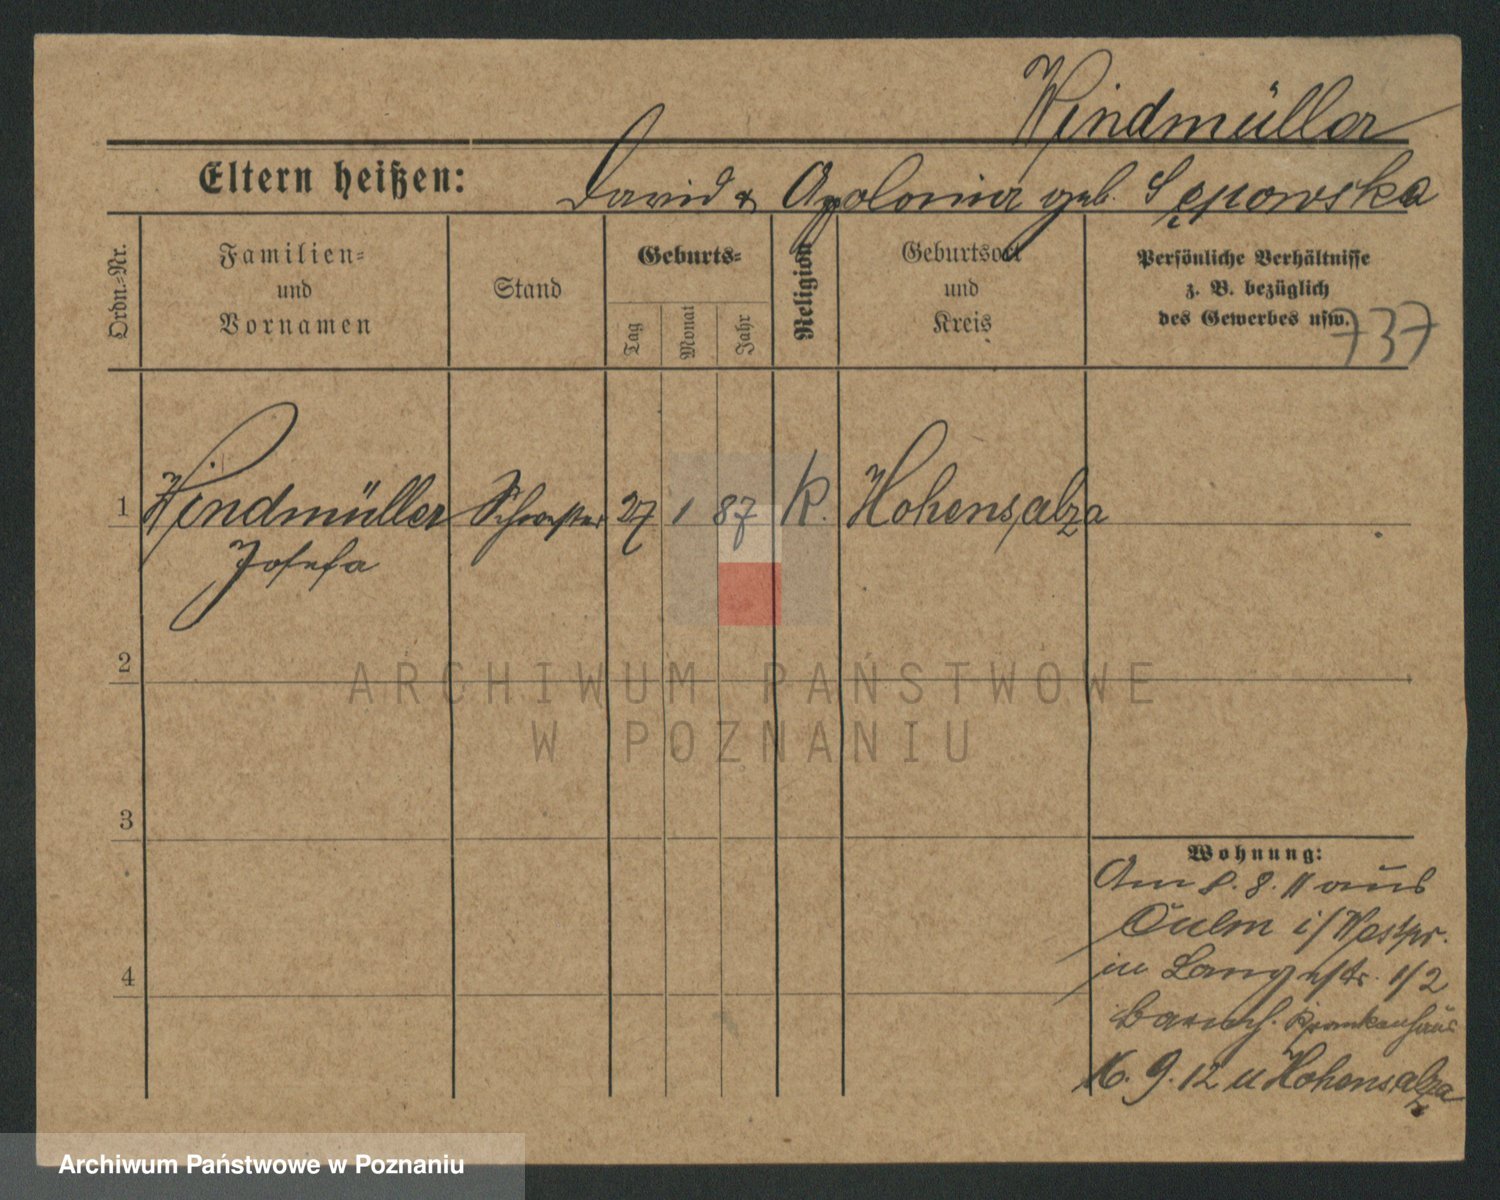 Windmüller
Eltern heißen: David & Apolonia geb. Sępowska
Ordn.-Nr.
Familien-
und
Vornamen
Stand
Geburts-
Tag
Monat
Jahr
Religion
Geburtsort
und
Kreis
Persönliche Verhältnisse
z. B. bezüglich
des Gewerbes usw.
737
1 Windmüller Schwester 27 1 87 K. Hohensalza
Josefa
2
ARCHIWUM PAŃSTWOWE
W POZNANIU
3
Wohnung:
Am 8. 8. 11 aus
Culm i/Westpr.
4
in Langestr. 1/2
Barmh. Krankenhaus
16. 9. 12 n Hohensalza
Archiwum Państwowe w Poznaniu